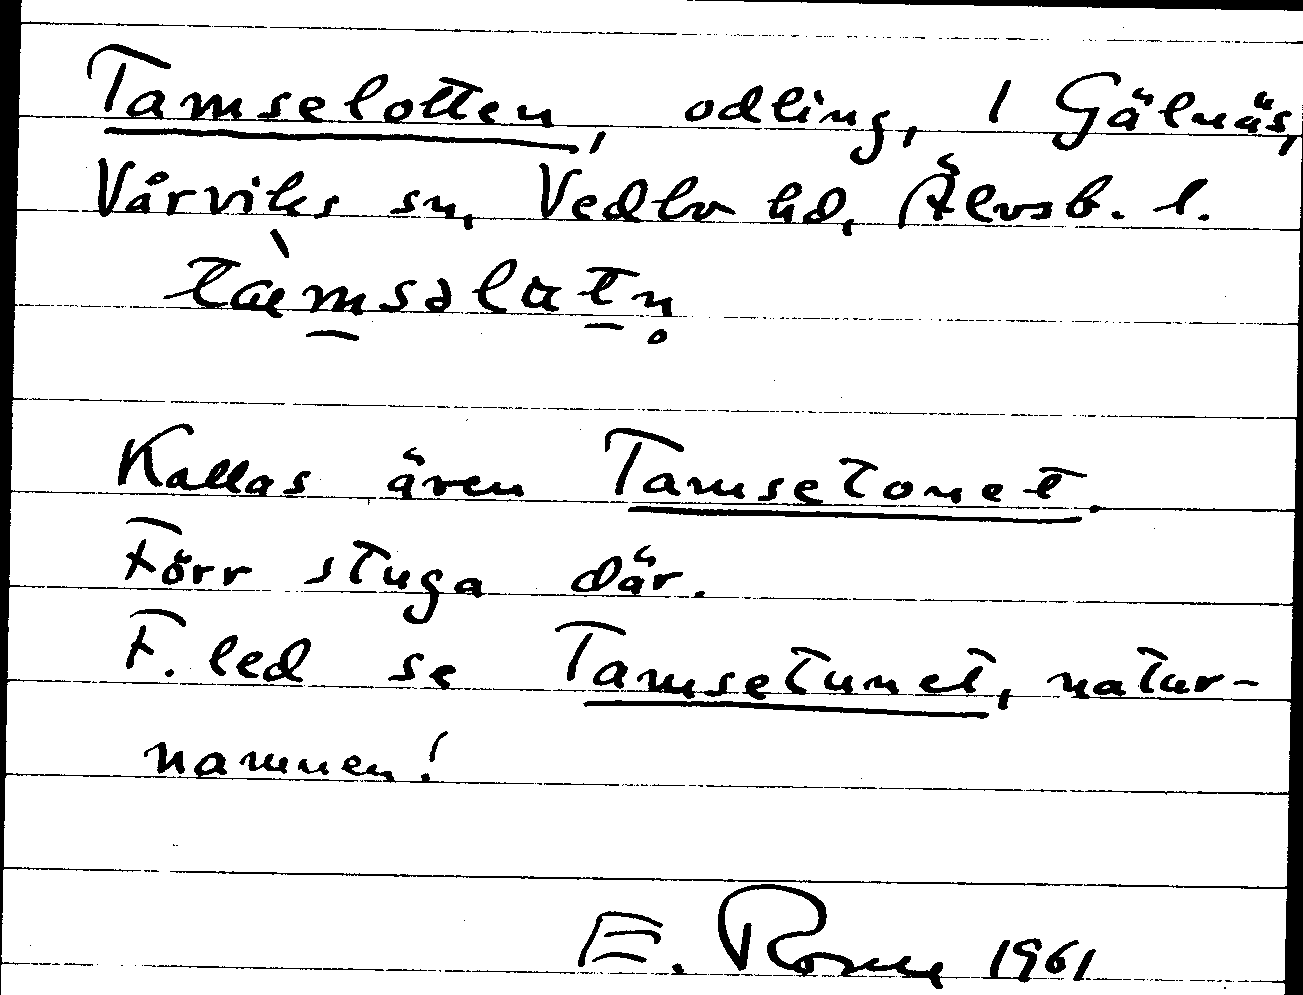 Tamselotten, odling, 1 Gälnäs,
Vårviks sn, Vedbo hd, Älvsb. l.
Kallas även Tamsetonet.
Förr stuga där.
F. led se Tamsetunet, natur-
namnen!
E. 1961